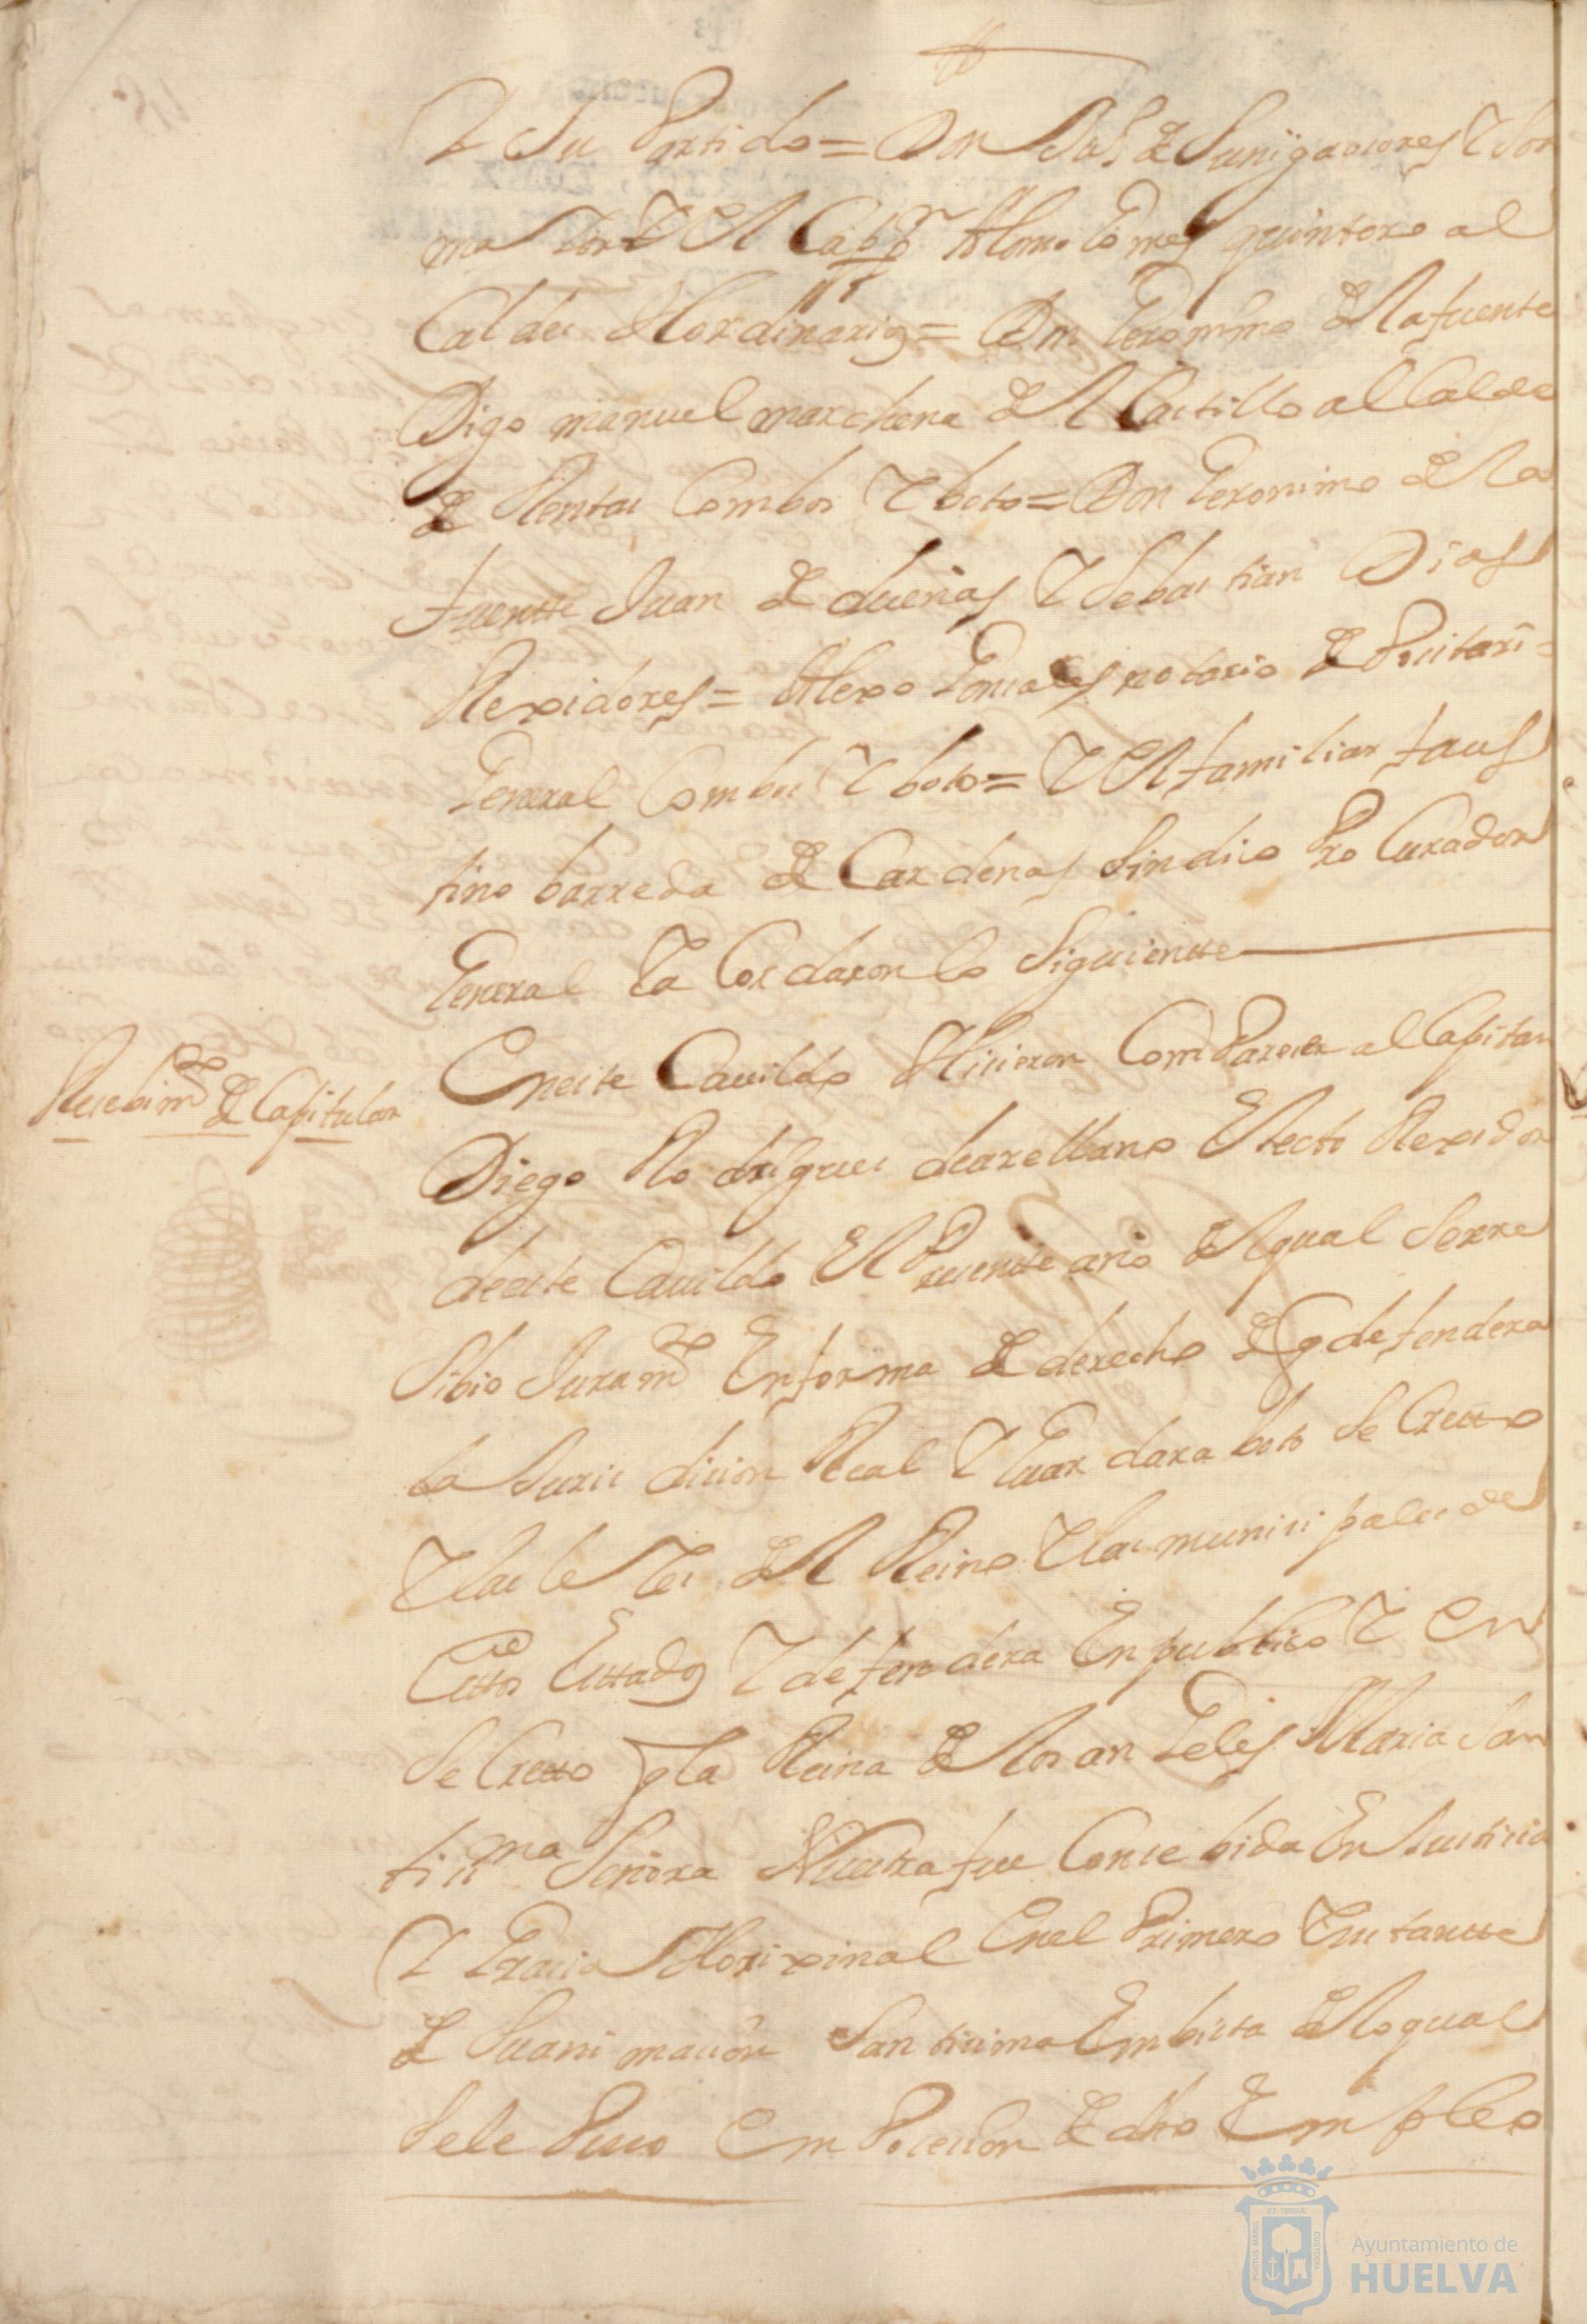 Y Su Partido = Don Ba.r de Sunigaciores Y Sor
ma Yor Y El Cap.n Alonso Gomes quintero al
Caldes Hordinarios = Don Geronimo de la fuente
Digo manuel marchena del Castillo alCalde
de Rentas Combos Y boto = Don Geronimo de la
fuentte Juan de dueñas Y Sebastian Dias
Rexidores = Alexo Gonsales notario
General Combos Y boto = Y El familiar faus
tino barreda de Cardenas Sindico Pro Curador
General Ya Cordaron lo Siguientte
Reсebim.to de Capitular
Eneste Cauildo Hisieron ComParecer al Capitan
Diego Rodrigues dearellano Electo Rexidor
deeste Cauildo El Presentte año del qual Serre
Sibio Juram.to Enforma de derecho de q defendera
la Juris dision Real Y Guar dara boto Se Cretto
Y las le Yes del Reino Y las munisi pales de
Esttos Esttados Y defen dera En publico Y En
Se Cretto q la Reina de los an Geles Maria San
tisi.ma Señora Nuestra fue Conse bida En Justisia
Y Grasia Horixinal Enel Primero Ynstantte
de Suani masion Santisima Embista de lo qual
Sele Puso Em Posesion de dho Em pleo
Ayuntamiento de
HUELVA